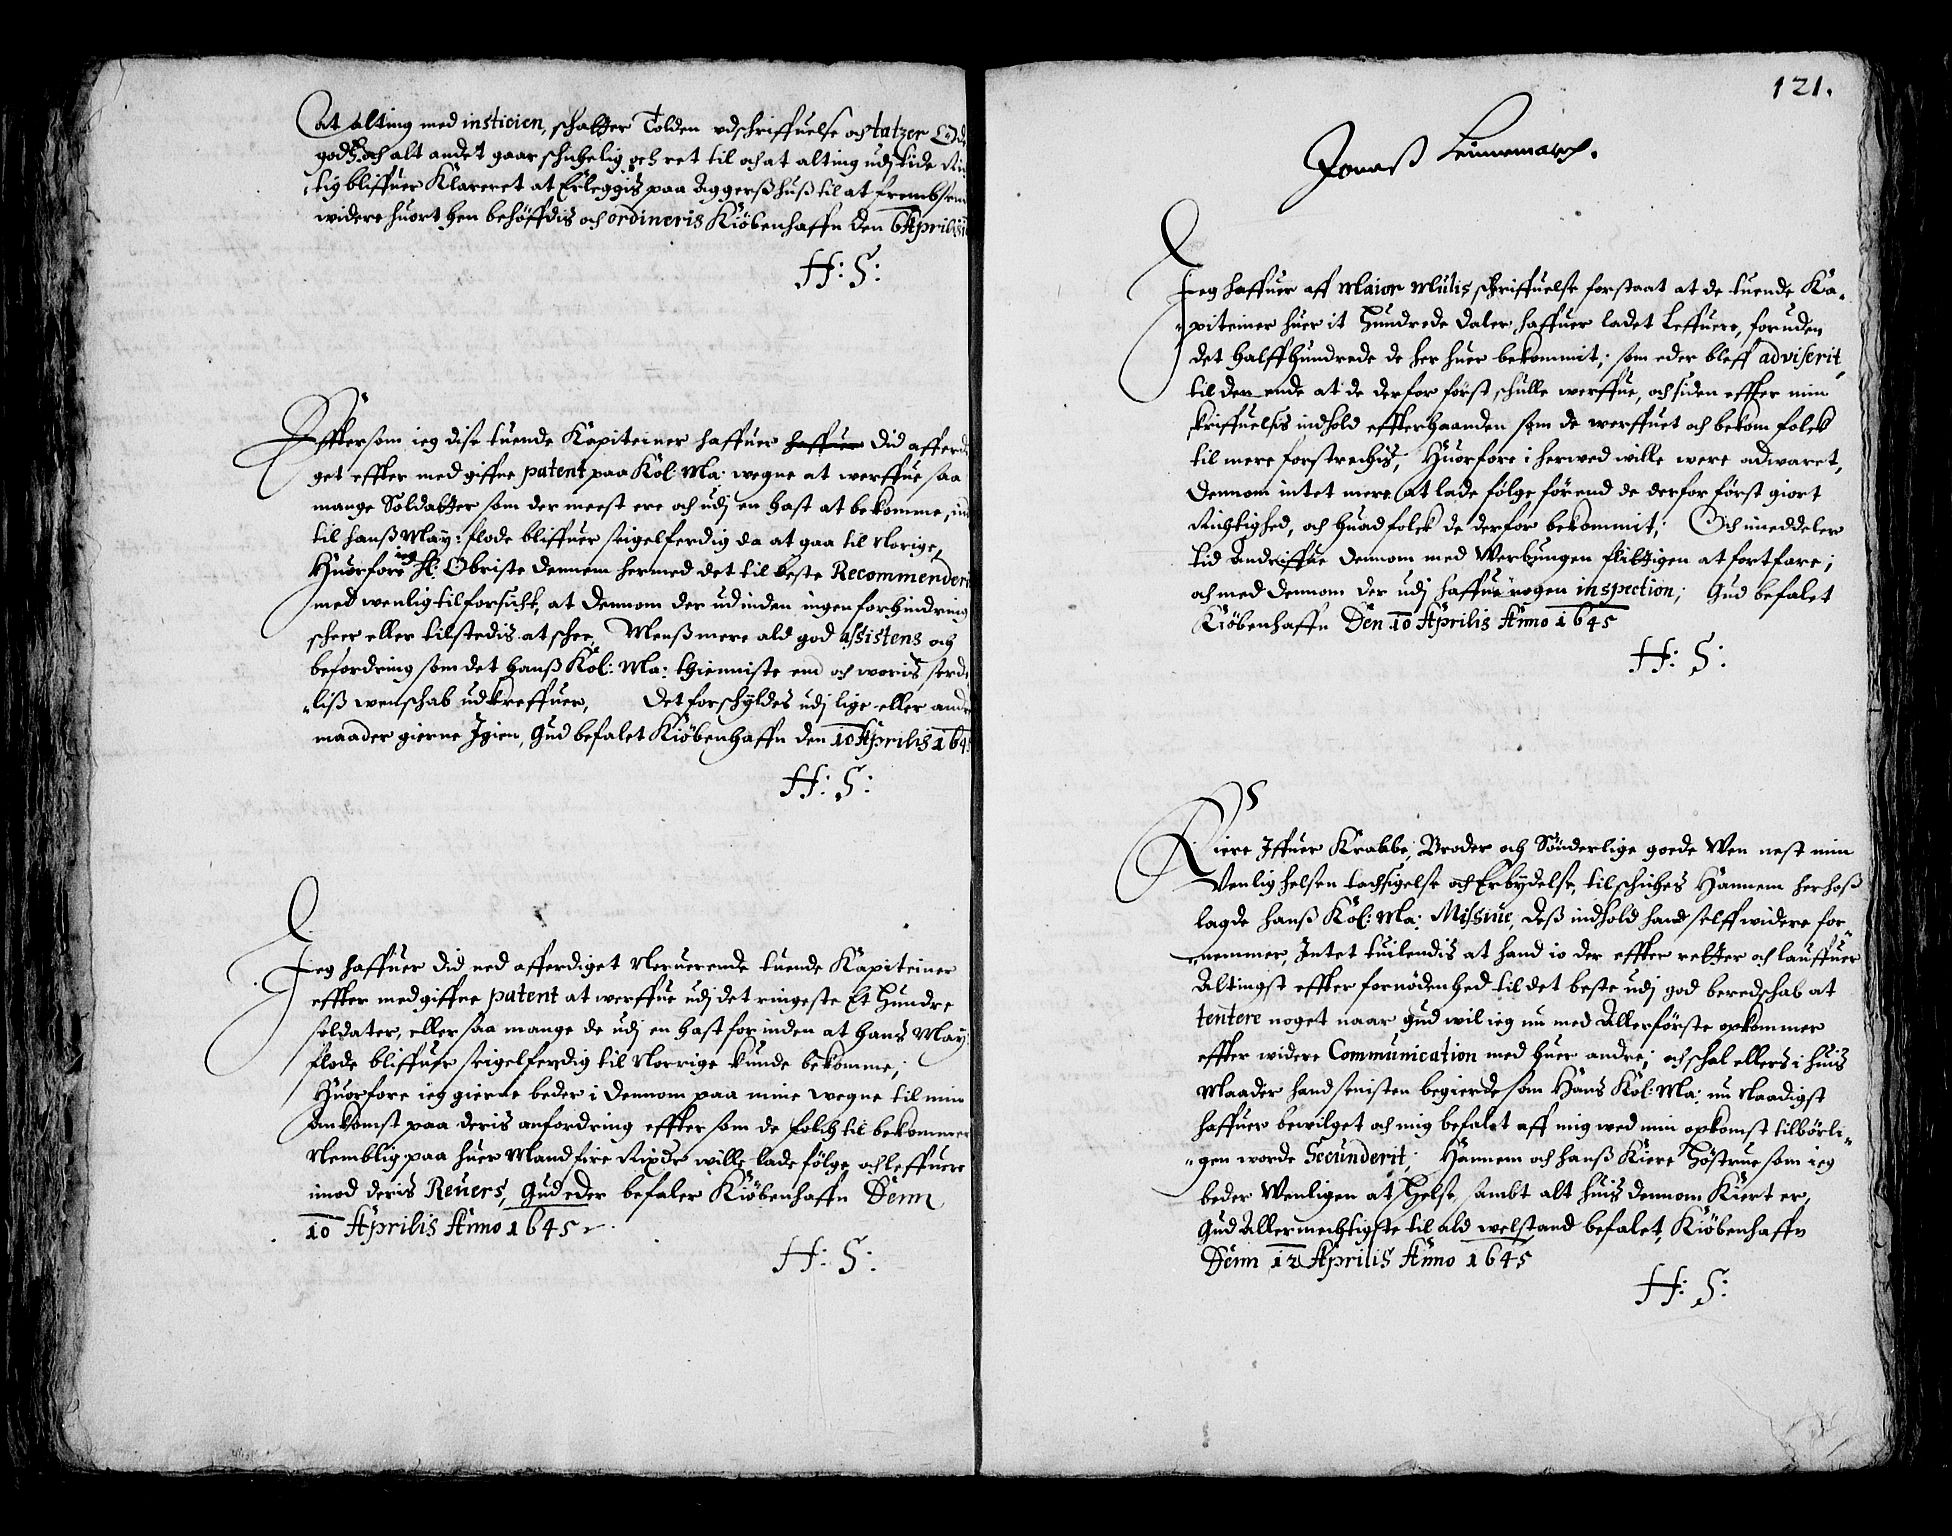 at alting med insticien, schatter Tolden udschriffuelse och tatzer
godtz och alt andet gaar schichelig och ret til och at alting udj tide
tig bliffuer Klareret at Erleggis paa Aggerßhuß til at frembsen
widere huort hen behöffdis och ordineris Kiöbenhaffn den 6 Aprilis
H: S:
Effter som ieg dise tuende Kapiteiner haffuer haffuer did afferdi
get effter medgiffne patent paa Köl: Ma: wegne at werffue saa
mange Soldatter som der meest ere och udj en hast at bekomme, ind
til hanß May: flode bliffuer seigelferdig da at gaa til Norige,
Huorfore ieg H: Obriste dennem hermed det til beste Recommenderi
med wenlig tilforsicht, at dennom der udinden ingen forhindring
scheer eller tilstedis at schee, Menß mere ald god assistens och
befordring som det hanß Köl: Ma: thienniste end och woris serde
liß wenschab udkreffuer, Det forschyldes udj lige eller andre
maader gierne Igien, Gud befalet Kiöbenhaffn den 10 Aprilis 1645
H: S:
Jeg haffuer did ned afferdiget Neruerende tuende Kapiteiner
effter medgiffne patent at werffue udj det ringeste Et Hundre
soldater, eller saa mange de udj en hast forinden at hans May:
flode bliffuer seigelferdig til Norrige kunde bekomme;
Huorfore ieg gierne beder i dennom paa mine wegne til min
Ankomst paa deris anfordring effter som de folch til bekommer
Nemblig paa huer Mand fire Rixdr wille lade følge och leffuere
imod deris Reuers, Gud eder befaler Kiöbenhaffn Denn
10 Aprilis Anno 1645
H: S:
121.
Jonaß Leinnemarch.
Jeg haffuer aff Maior Mulis schriffuelse forstaat at de tuende Ka
piteiner huer it Hundrede daler haffuer ladet leffuere, foruden
det halff hundrede de her huer bekommit; som eder bleff adviserit,
til den ende at de derfor först schulle werffue, och siden effter min
skriffuelsis indhold effterhaanden som de werffuet och bekom folck
til mere forstrechis, Huorfore i herwed wille were adwaret,
dennom intet mere at lade følge förend de derfor först giort
Richtighed, och huad folck de derfor bekommit; Och imeddeler
tid Andriffue dennom med Werbungen flittigen at fortfare;
och med dennom der udj haffue nogen inspection; Gud befalet
Kiöbenhaffn Den 10 Aprilis Anno 1645
H: S:
Kiere Iffuer Krabbe, Broder och Sönderlige goede Wen nest min
Venlig helsen tachsigelse och Erbydelse, tilschiches Hannem herhoß
lagde hanß Köl: Ma: Missiue, deß indhold hand selff widere for
nemmer, Intet tuilendis at hand io der effter retter och lauffuer
Altingst effter fornödenhed til det beste udj god beredschab at
tentere noget naar gud wil ieg nu med Allerförste opkommer
effter widere Communication med huer andre; och schal ellers i huis
Maader hand seniste begierde som Hans Köl: Ma: nu Naadigst
haffuer bewilget och mig befalet aff mig wed min opkomst tilbörli
gen worde Secunderit; Hannem och hanß Kiere Höstrue som ieg
beder Wenligen at Helse, sambt alt huis dennom Kiert er,
Gud Allermechtigste til ald welstand befalet, Kiöbenhaffn
Denn 12 Aprilis Anno 1645
H: S: